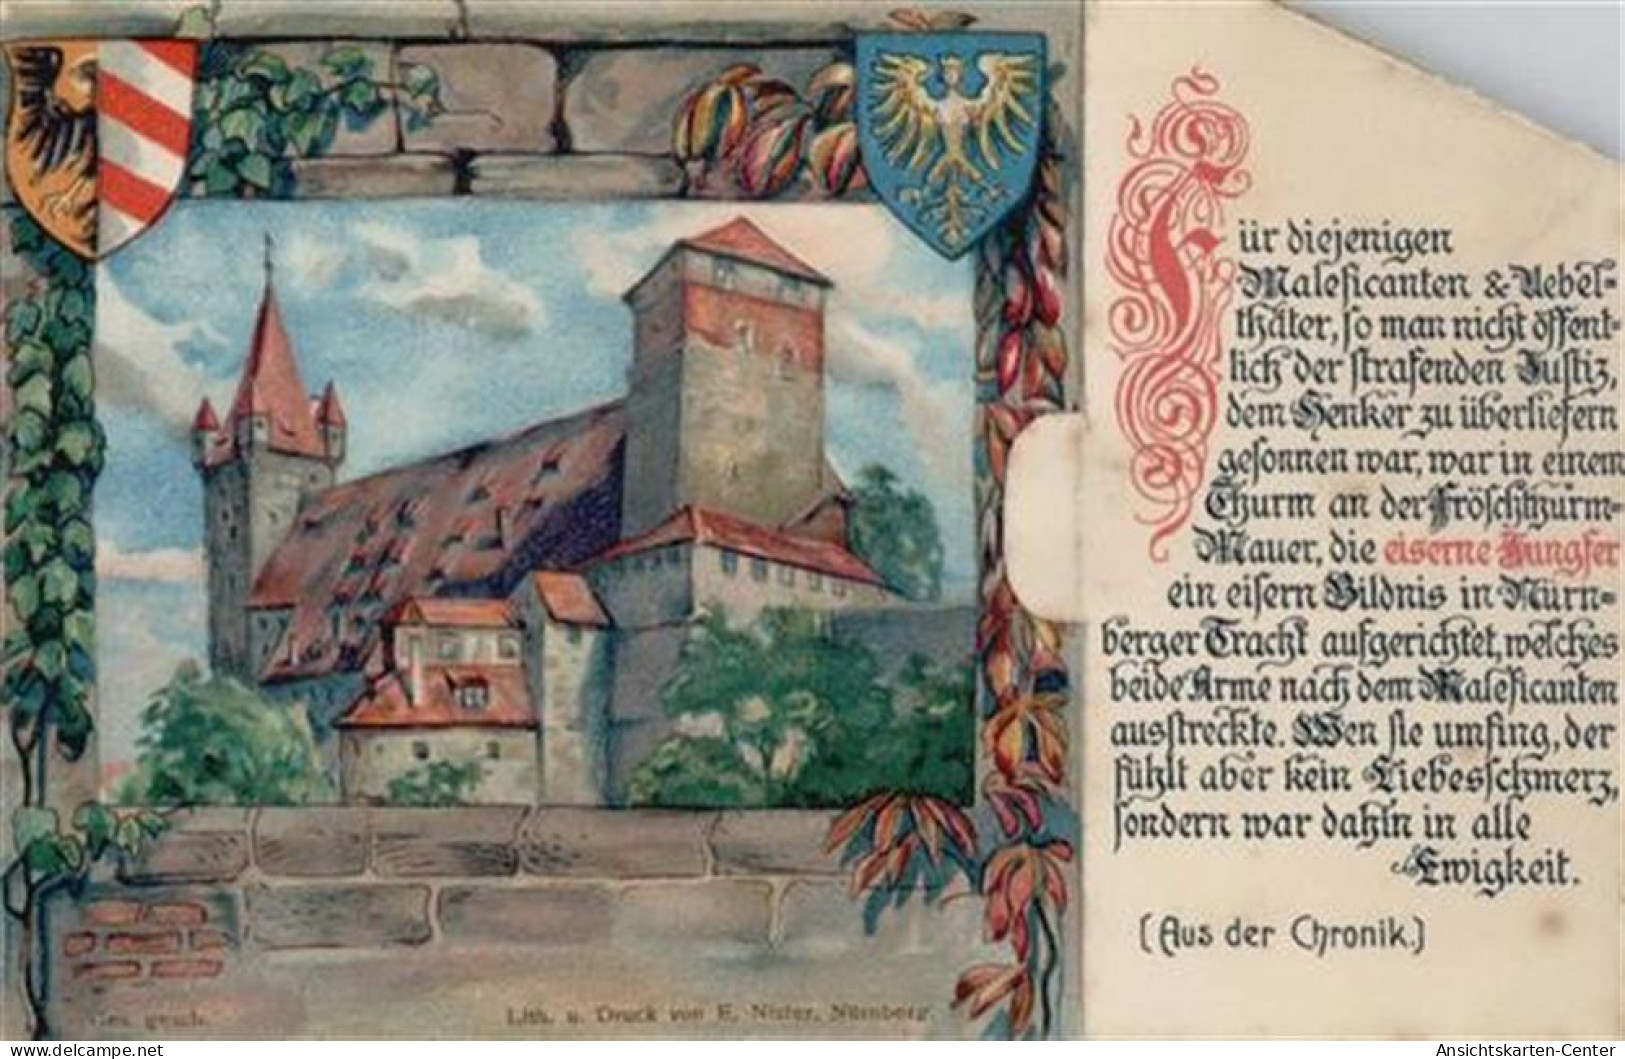 Für diejenigen
Maleficanten & Uebel-
thäter, so man nicht öffent-
lich der strafenden Justiz,
dem Henker zu überliefern
gesonnen war, war in einem
Thurm an der Fröschthurm-
Mauer, die eiserne Jungfer
ein eisern Bildnis in Nürn-
berger Tracht aufgerichtet, welches
beide Arme nach dem Maleficanten
ausstreckte. Wen sie umfing, der
fühlt aber kein Liebesschmerz,
sondern war dahin in alle
Ewigkeit.
(Aus der Chronik.)
Ges. gesch.
Lith. u. Druck von E. Nister, Nürnberg.
delcampe.net
Ansichtskarten-Center